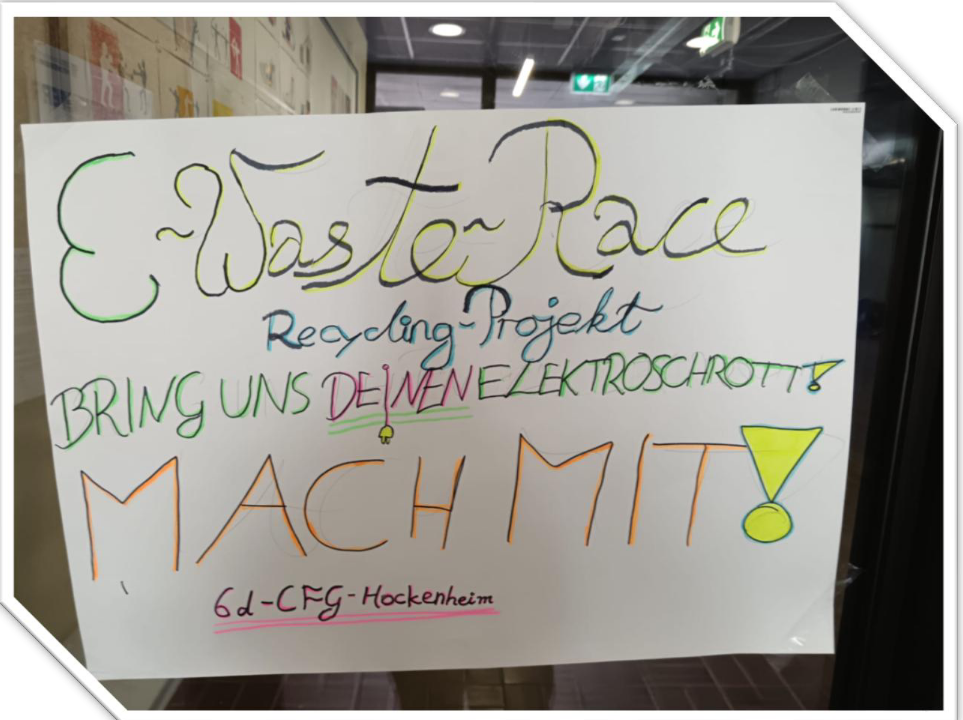 E-Waste-Race
Recycling-Projekt
BRING UNS DEINEN ELEKTROSCHROTT!
MACH MIT!
6d-CFG-Hockenheim